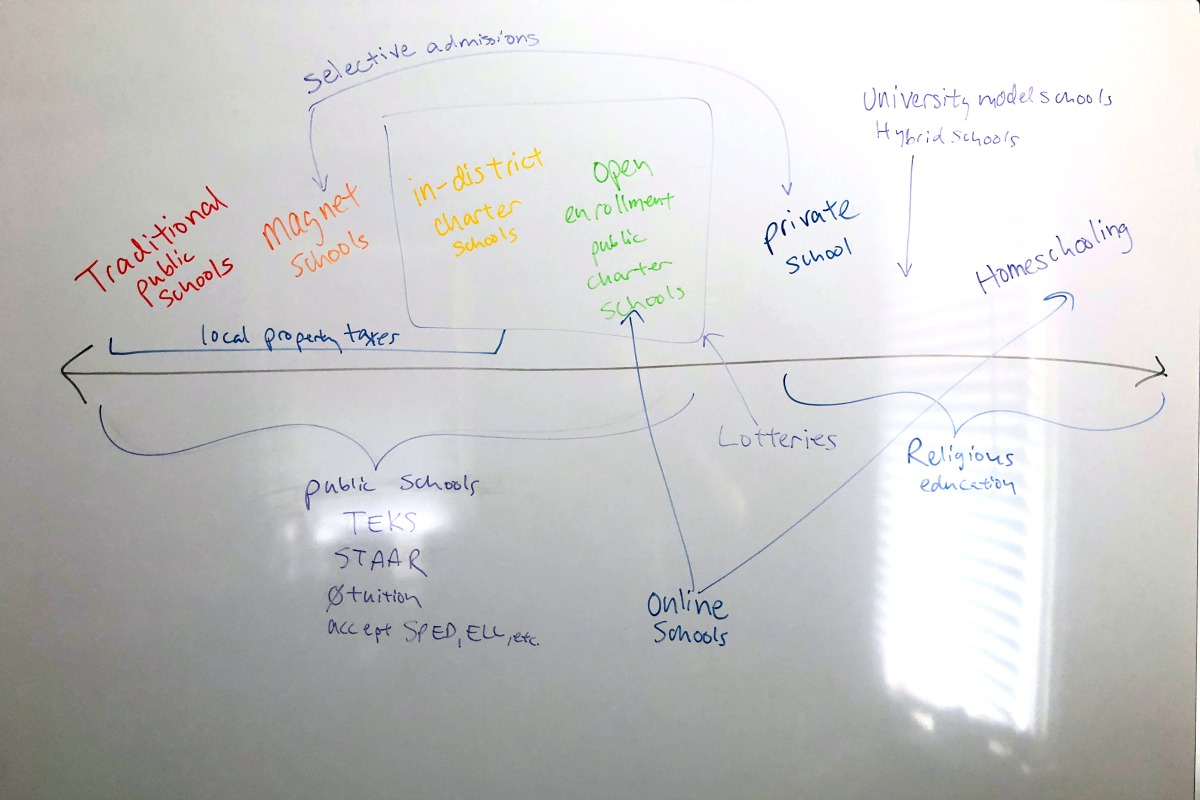 selective admissions
University model schools
Hybrid schools
Traditional
public
schools
Magnet
schools
in-district
charter
schools
open
enrollment
public
charter
schools
private
school
Homeschooling
local property taxes
Lotteries
Religious
education
public schools
TEKS
STAAR
Øtuition
accept SPED, ELL, etc.
Online
Schools